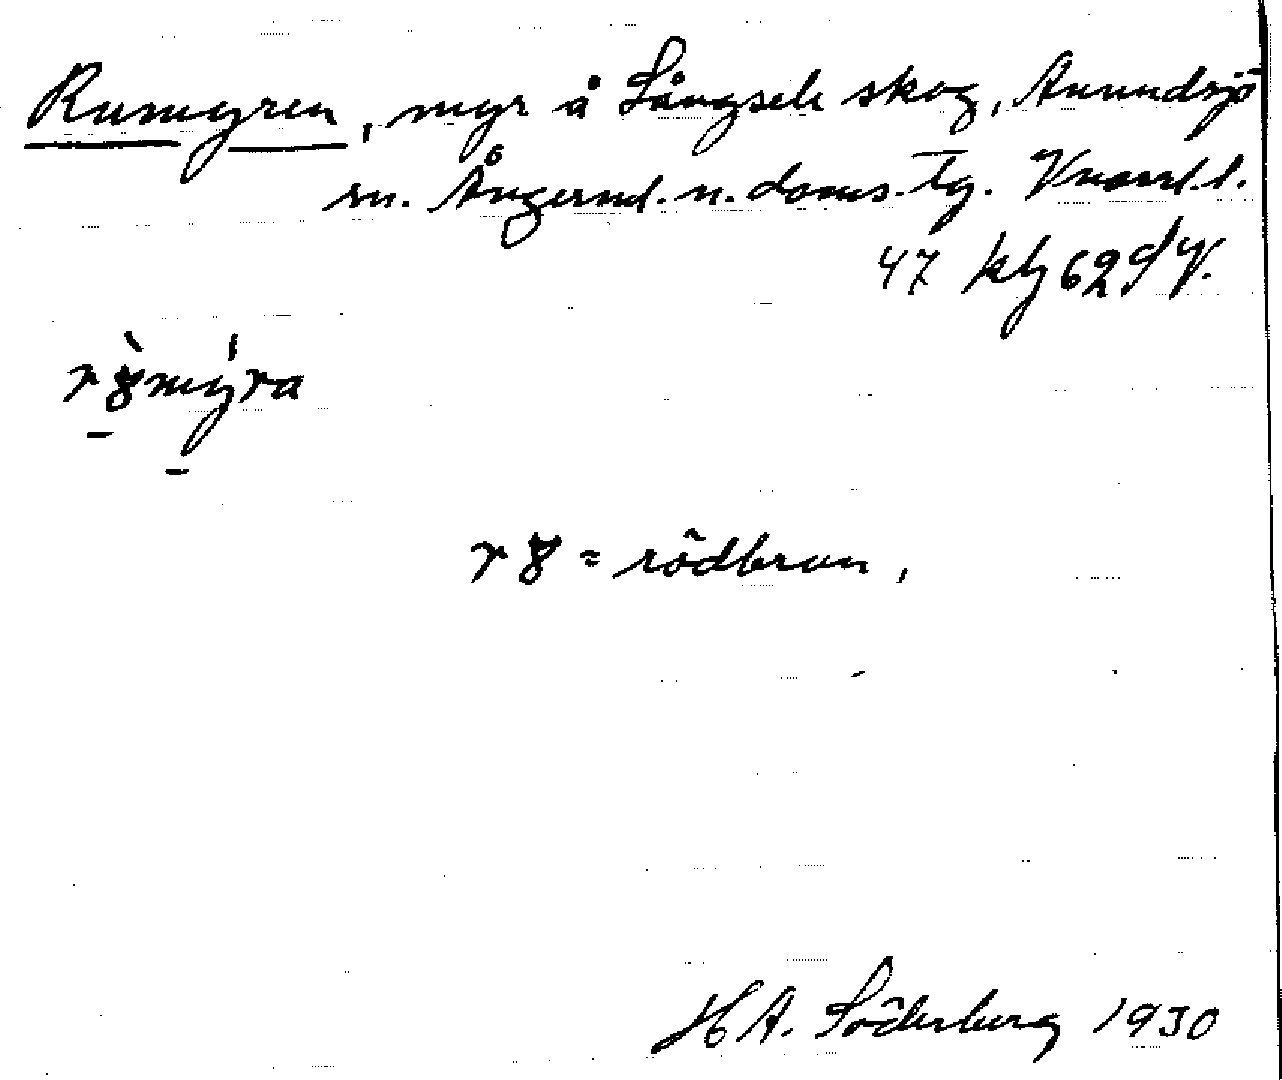 Rumyren, myr å Långsele skog, Anundsjö
sn. Ångerml. n. doms. tg. Vnorrl. l.
47 klj 62 d/y.
rȣ̀mýra
rȣ = rödbrun,
H A. Söderberg 1930